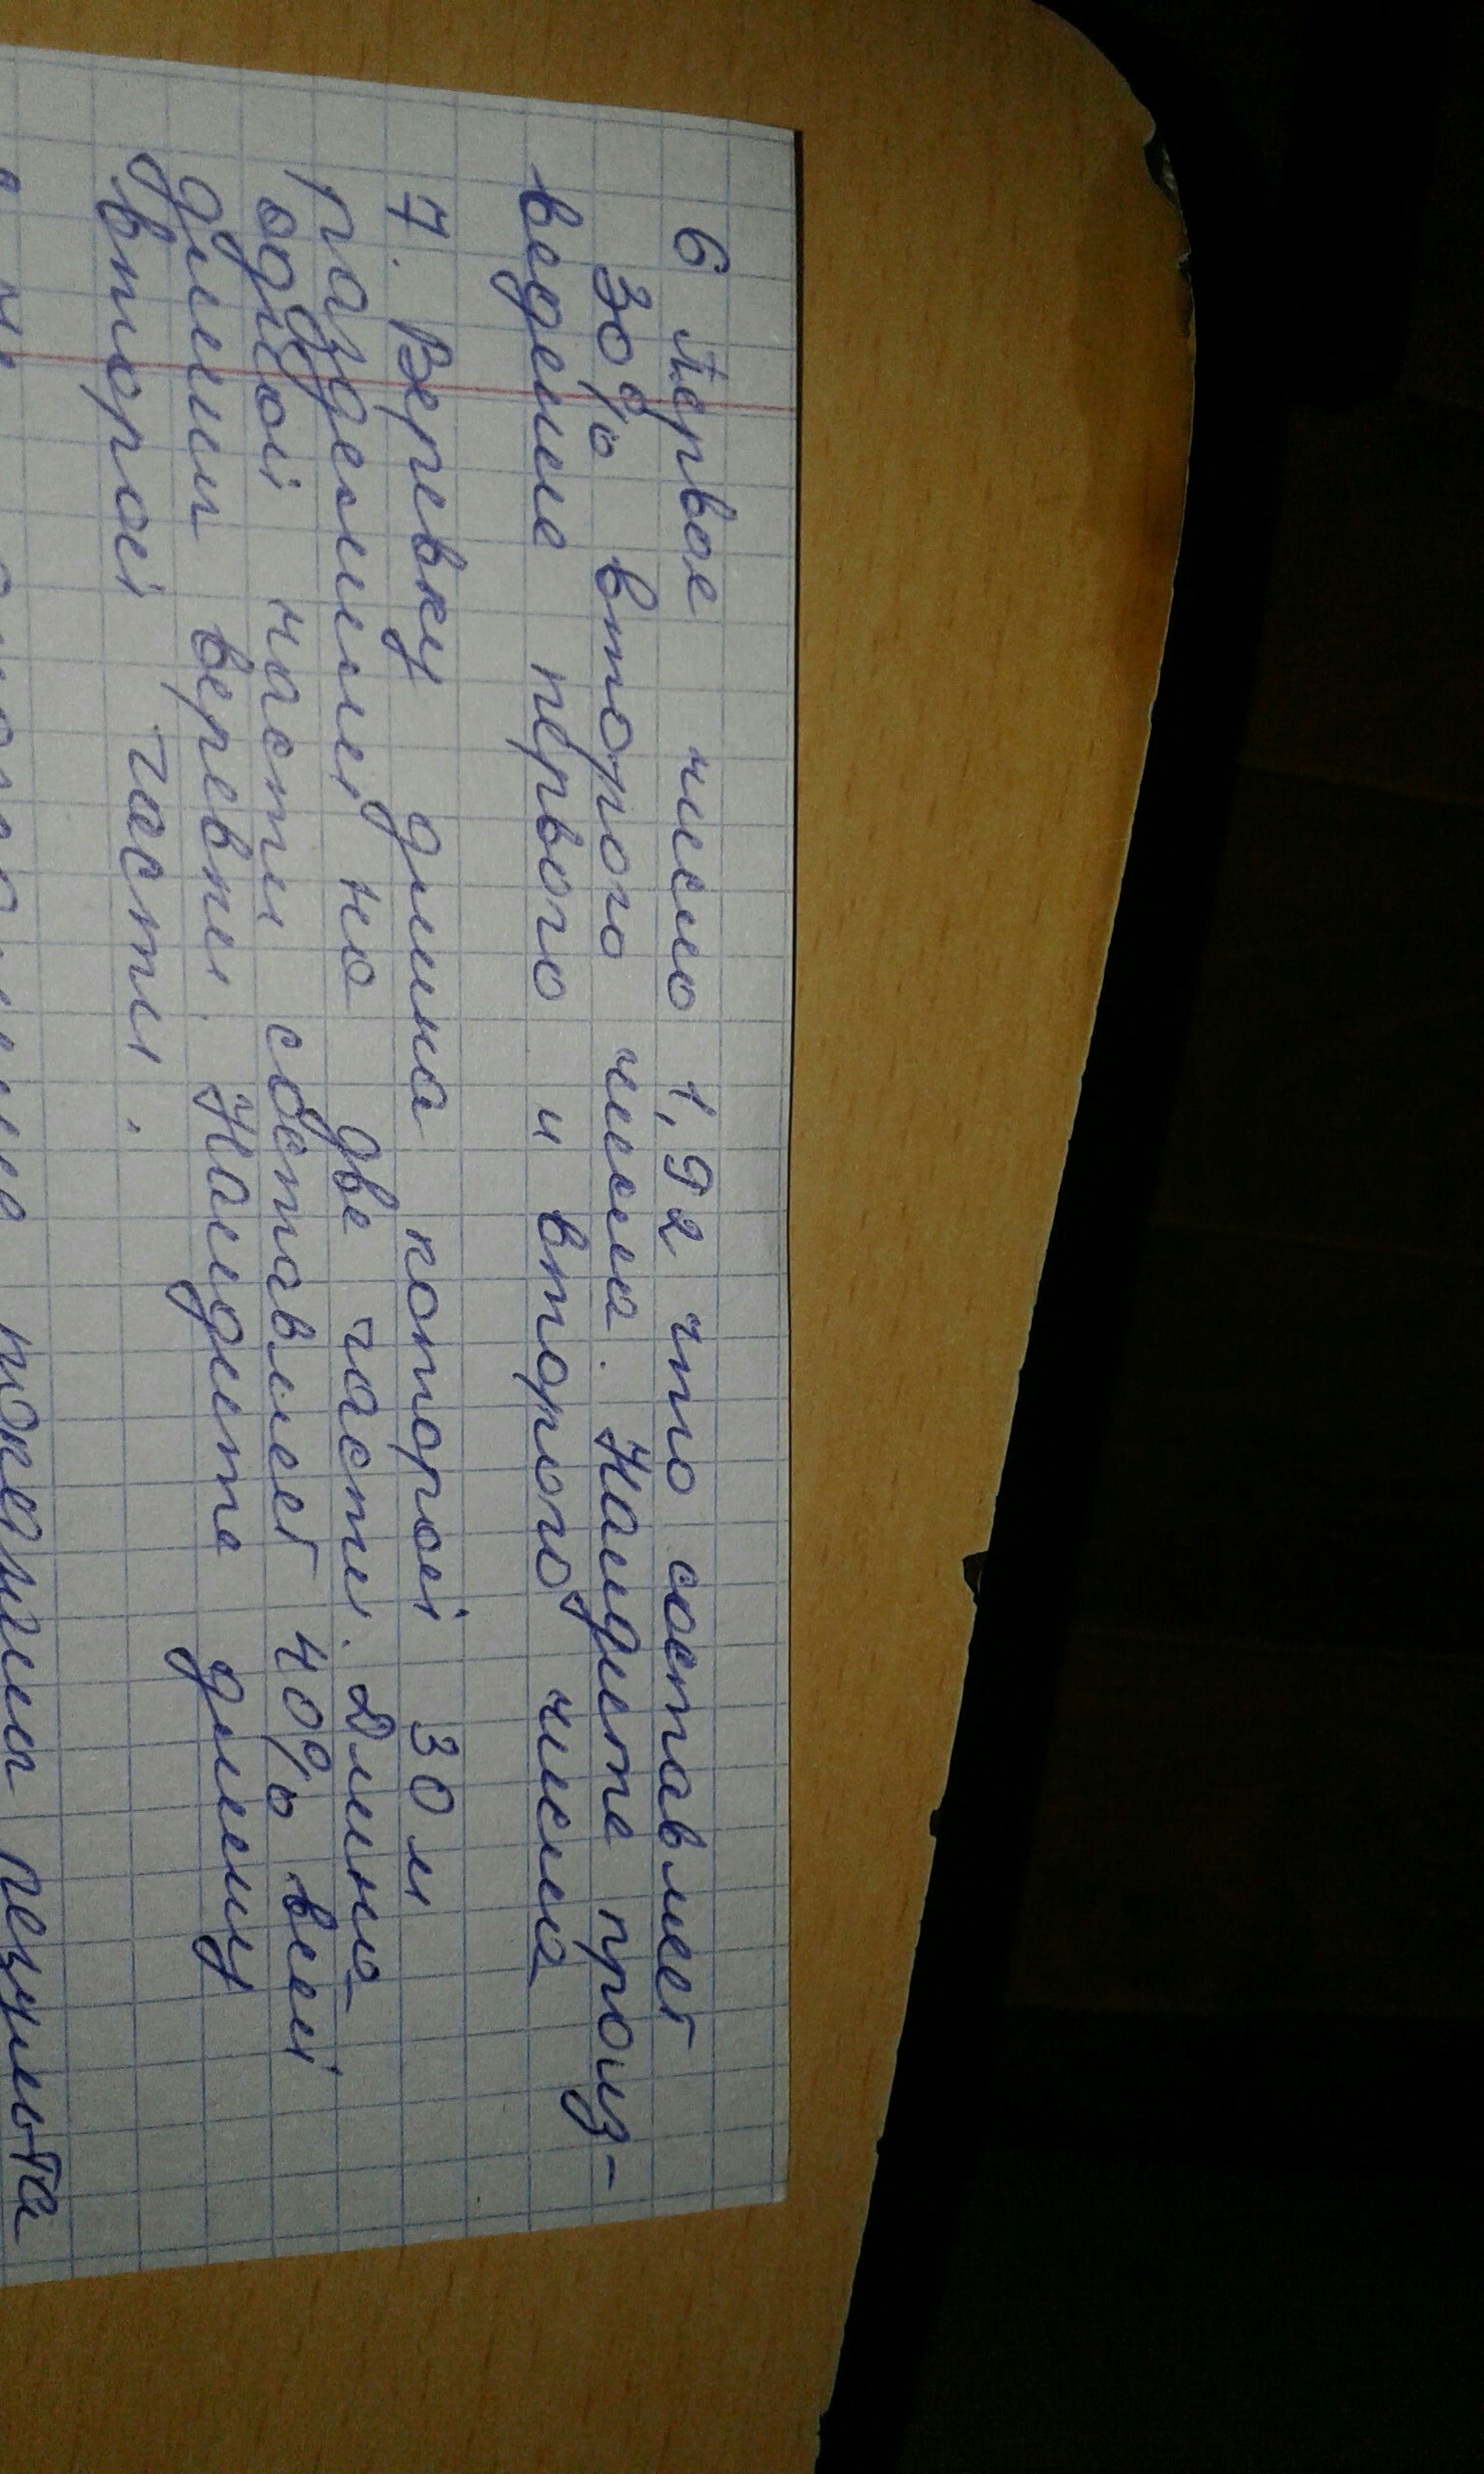 6 Первое число 1,92 что составляет
30% второго числа. Найдите произ-
ведение первого и второго числа
7. Веревку длина которой 30 м
разделили на две части. Длина
одной части составляет 40% всей
длины веревки. Найдите длину
второй части.
результа